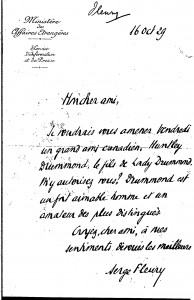 Fleury
16 Oct 29
Ministère
des
Affaires Étrangères
Service
d'Information
et de Presse
Mon cher ami,
Je voudrais vous amener vendredi
un grand ami canadien, Huntley
Drummond, le fils de Lady Drummond.
M'y autorisez vous? Drummond est
un fort aimable homme et un
amateur des plus distingués
Croyez, cher ami, à mes
sentiments dévoués les meilleurs
Serge Fleury